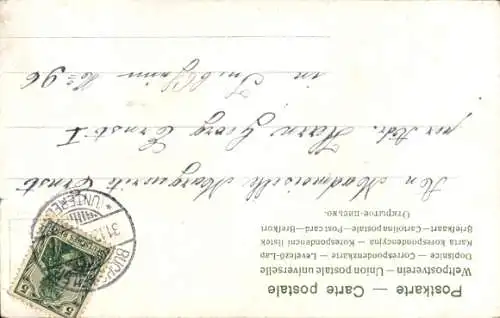 Postkarte — Carte postale
Weltpostverein — Union postale universelle
Dopisnice — Correspondenzkarte — Levelező-Lap
Karta korespondencyjna — Korespondenční lístek
Briefkaart — Cartolina postale — Post card — Brefkort
Открытое письмо.
An Mademoiselle Marguerite Ernst
per Adr. Herrn Georg Ernst I
in
No 96
UNTERE
31.12
BUCHS
5 5